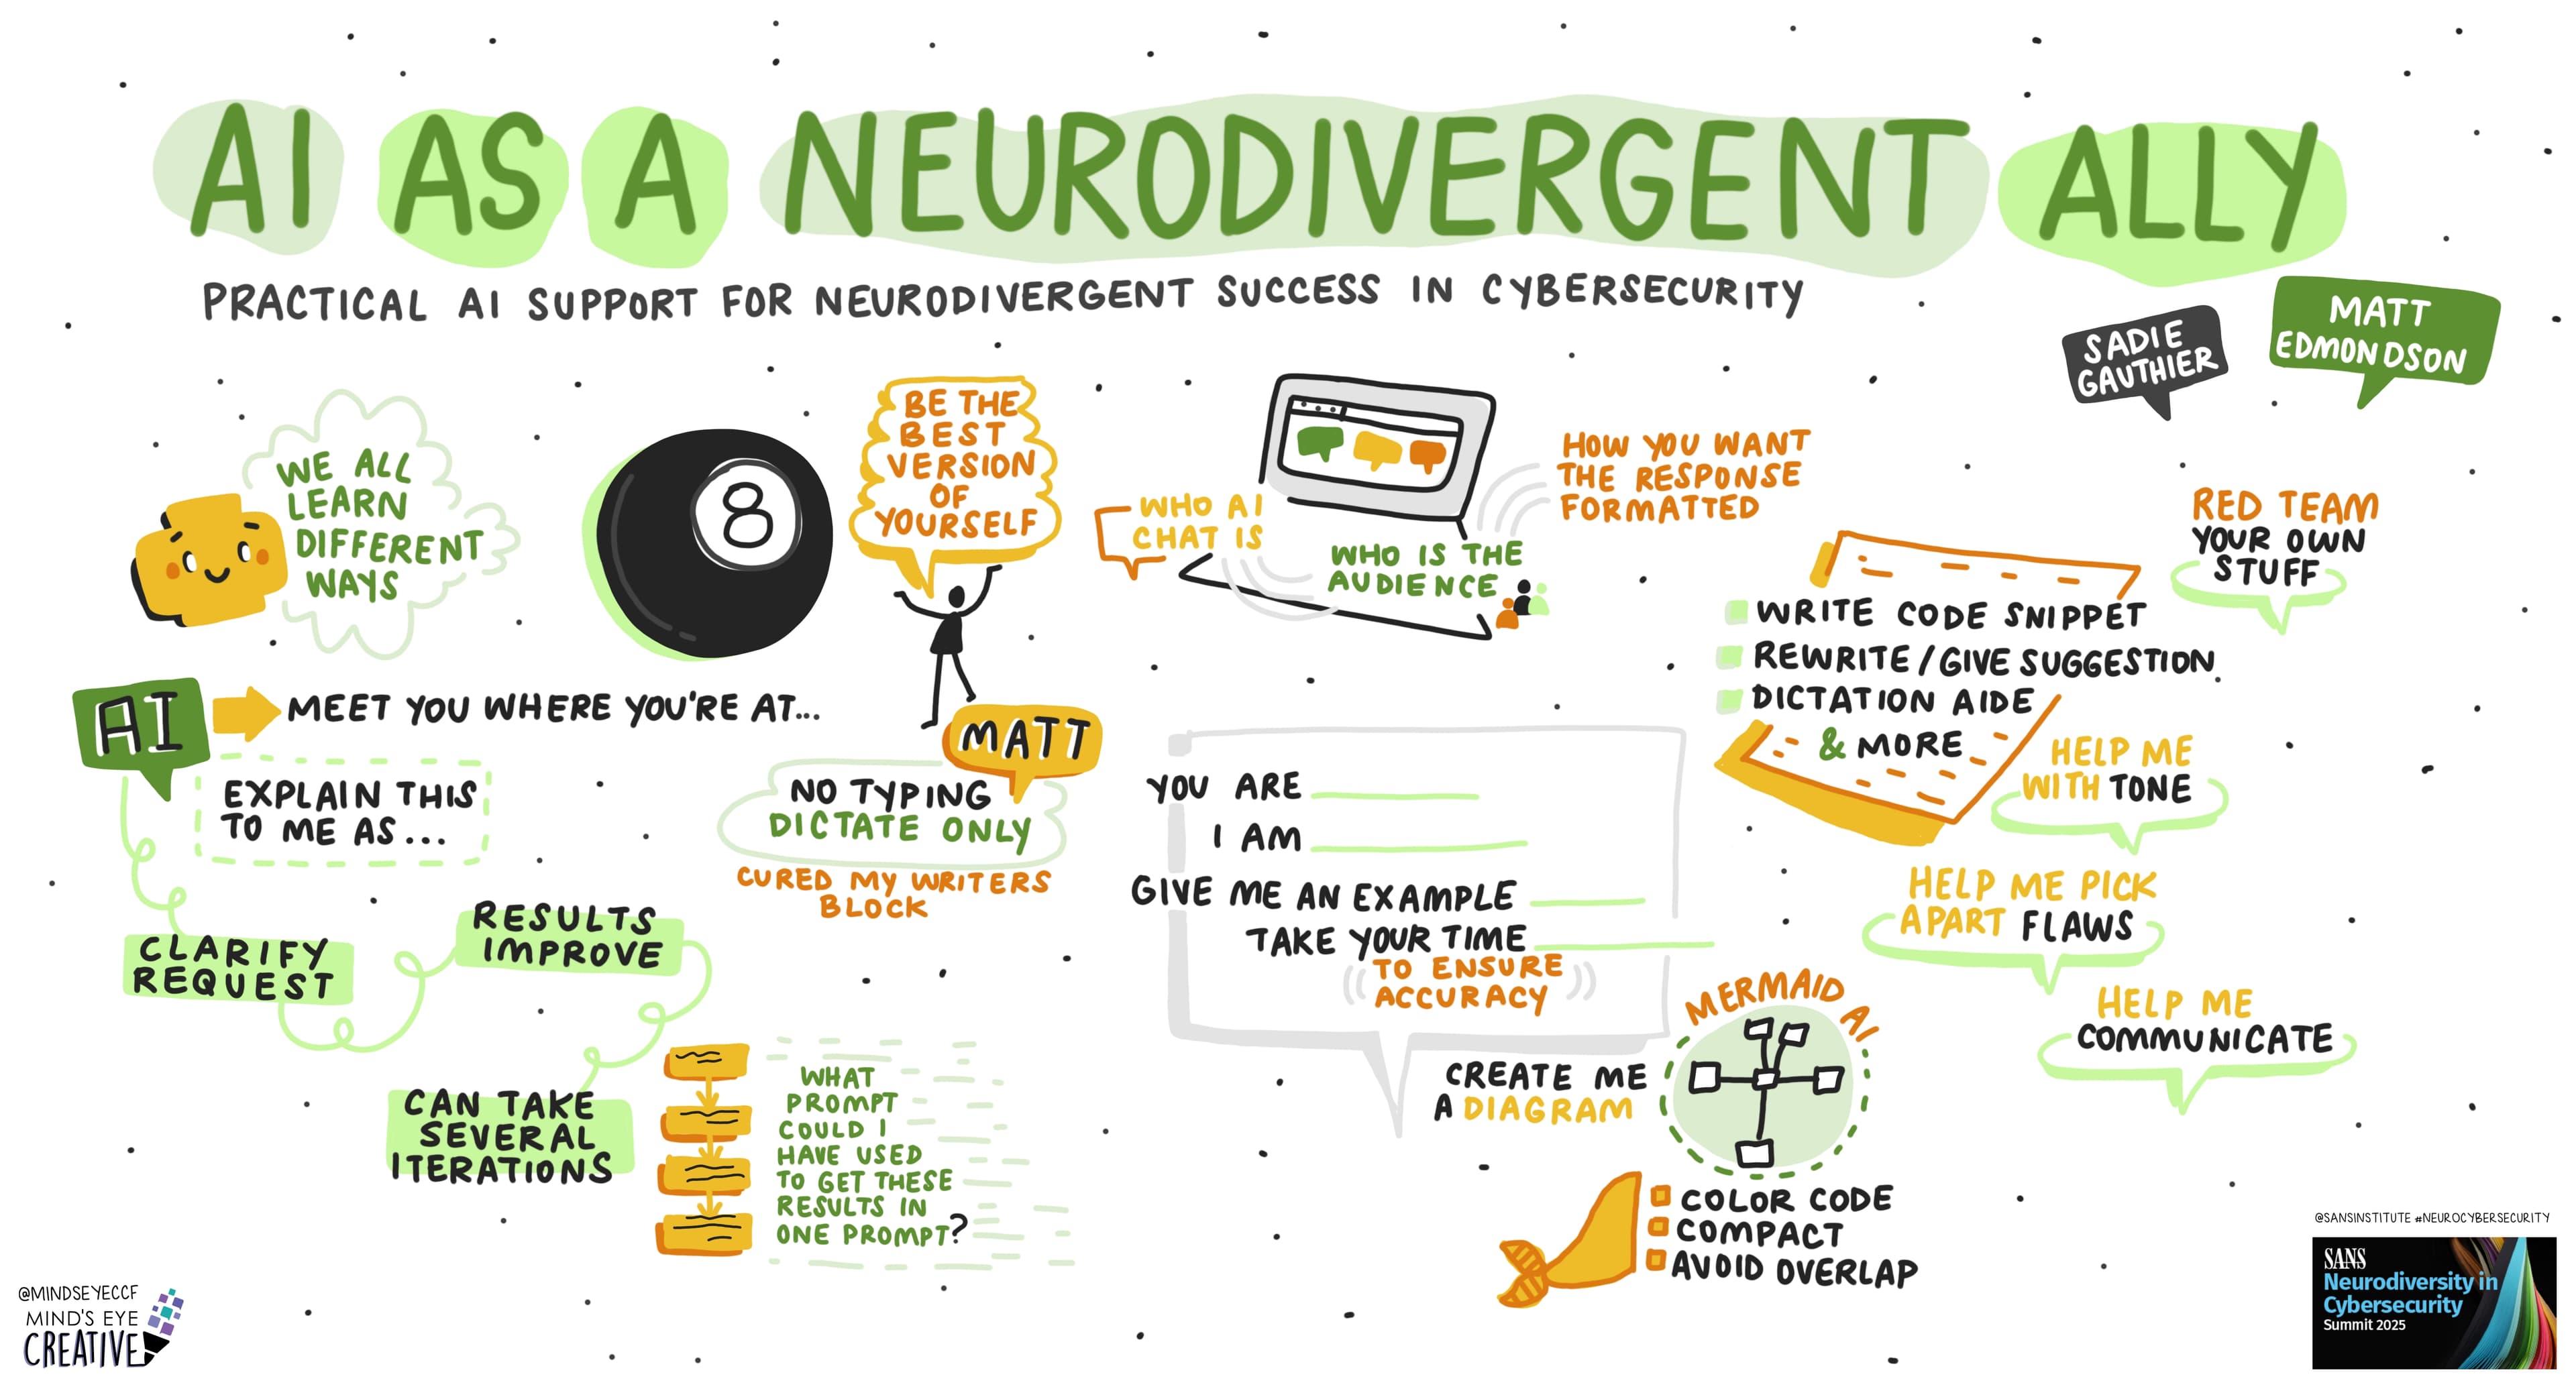 AI AS A NEURODIVERGENT ALLY
PRACTICAL AI SUPPORT FOR NEURODIVERGENT SUCCESS IN CYBERSECURITY
SADIE
GAUTHIER
MATT
EDMONDSON
WE ALL
LEARN
DIFFERENT
WAYS
8
BE THE
BEST
VERSION
OF
YOURSELF
AI
MEET YOU WHERE YOU'RE AT...
EXPLAIN THIS
TO ME AS...
CLARIFY
REQUEST
RESULTS
IMPROVE
CAN TAKE
SEVERAL
ITERATIONS
WHAT
PROMPT
COULD I
HAVE USED
TO GET THESE
RESULTS IN
ONE PROMPT?
MATT
NO TYPING
DICTATE ONLY
CURED MY WRITERS
BLOCK
WHO AI
CHAT IS
WHO IS THE
AUDIENCE
HOW YOU WANT
THE RESPONSE
FORMATTED
YOU ARE
I AM
GIVE ME AN EXAMPLE
TAKE YOUR TIME
TO ENSURE
ACCURACY
CREATE ME
A DIAGRAM
MERMAID AI
COLOR CODE
COMPACT
AVOID OVERLAP
WRITE CODE SNIPPET
REWRITE/GIVE SUGGESTION
DICTATION AIDE
& MORE
RED TEAM
YOUR OWN
STUFF
HELP ME
WITH TONE
HELP ME PICK
APART FLAWS
HELP ME
COMMUNICATE
@MINDSEYECCF
MIND'S EYE
CREATIVE
@SANSINSTITUTE #NEUROCYBERSECURITY
SANS
Neurodiversity in
Cybersecurity
Summit 2025